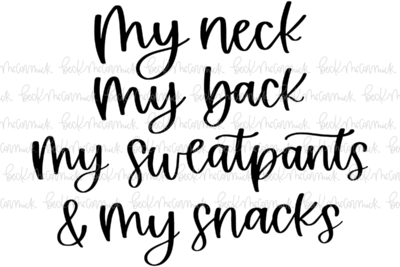 My neck
My back
My sweatpants
& My snacks